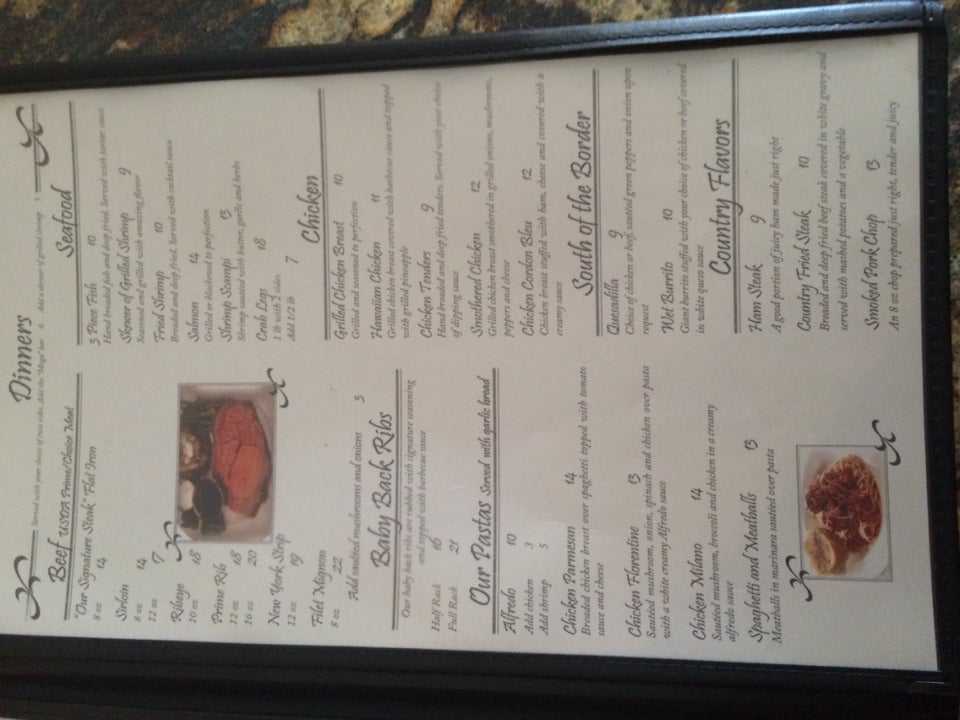 Dinners
Served with your choice of two sides. Add the "Mega" bar 4. Add a skewer of grilled shrimp 5.
Beef USDA Prime/Choice Meat
"Our Signature Steak" Flat Iron
8 oz 14
Sirloin
8 oz 14
12 oz 17
Ribeye
10 oz 18
Prime Rib
12 oz 18
16 oz 20
New York Strip
12 oz 19
Filet Mignon
8 oz 22
Add sautéed mushrooms and onions 3
Baby Back Ribs
Our baby back ribs are rubbed with signature seasoning
and topped with barbecue sauce
Half Rack 16
Full Rack 21
Our Pastas Served with garlic bread
Alfredo 10
Add chicken 3
Add shrimp 5
Chicken Parmesan 14
Breaded chicken breast over spaghetti topped with tomato
sauce and cheese
Chicken Florentine 13
Sautéed mushroom, onion, spinach and chicken over pasta
with a white creamy Alfredo sauce
Chicken Milano 14
Sautéed mushroom, broccoli and chicken in a creamy
alfredo sauce
Spaghetti and Meatballs 13
Meatballs in marinara sautéed over pasta
Seafood
3 Piece Fish 10
Hand breaded fish and deep fried. Served with tartar sauce
Skewer of Grilled Shrimp 9
Seasoned and grilled with amazing flavor
Fried Shrimp 10
Breaded and deep fried. Served with cocktail sauce
Salmon 14
Grilled or blackened to perfection
Shrimp Scampi 13
Shrimp sautéed with butter, garlic and herbs
Crab Legs 18
1 lb with 2 sides
Add 1/2 lb 7
Chicken
Grilled Chicken Breast 10
Grilled and seasoned to perfection
Hawaiian Chicken 11
Grilled chicken breast covered with barbecue sauce and topped
with grilled pineapple
Chicken Tenders 9
Hand breaded and deep fried tenders. Served with your choice
of dipping sauce
Smothered Chicken 12
Grilled chicken breast smothered in grilled onions, mushrooms,
peppers and cheese
Chicken Cordon Bleu 12
Chicken breast stuffed with ham, cheese and covered with a
creamy sauce
South of the Border
Quesadilla 9
Choice of chicken or beef, sautéed green peppers and onion upon
request
Wet Burrito 10
Giant burrito stuffed with your choice of chicken or beef covered
in white queso sauce
Country Flavors
Ham Steak 9
A good portion of juicy ham made just right
Country Fried Steak 10
Breaded and deep fried beef steak covered in white gravy and
served with mashed potatoes and a vegetable
Smoked Pork Chop 13
An 8 oz chop prepared just right, tender and juicy